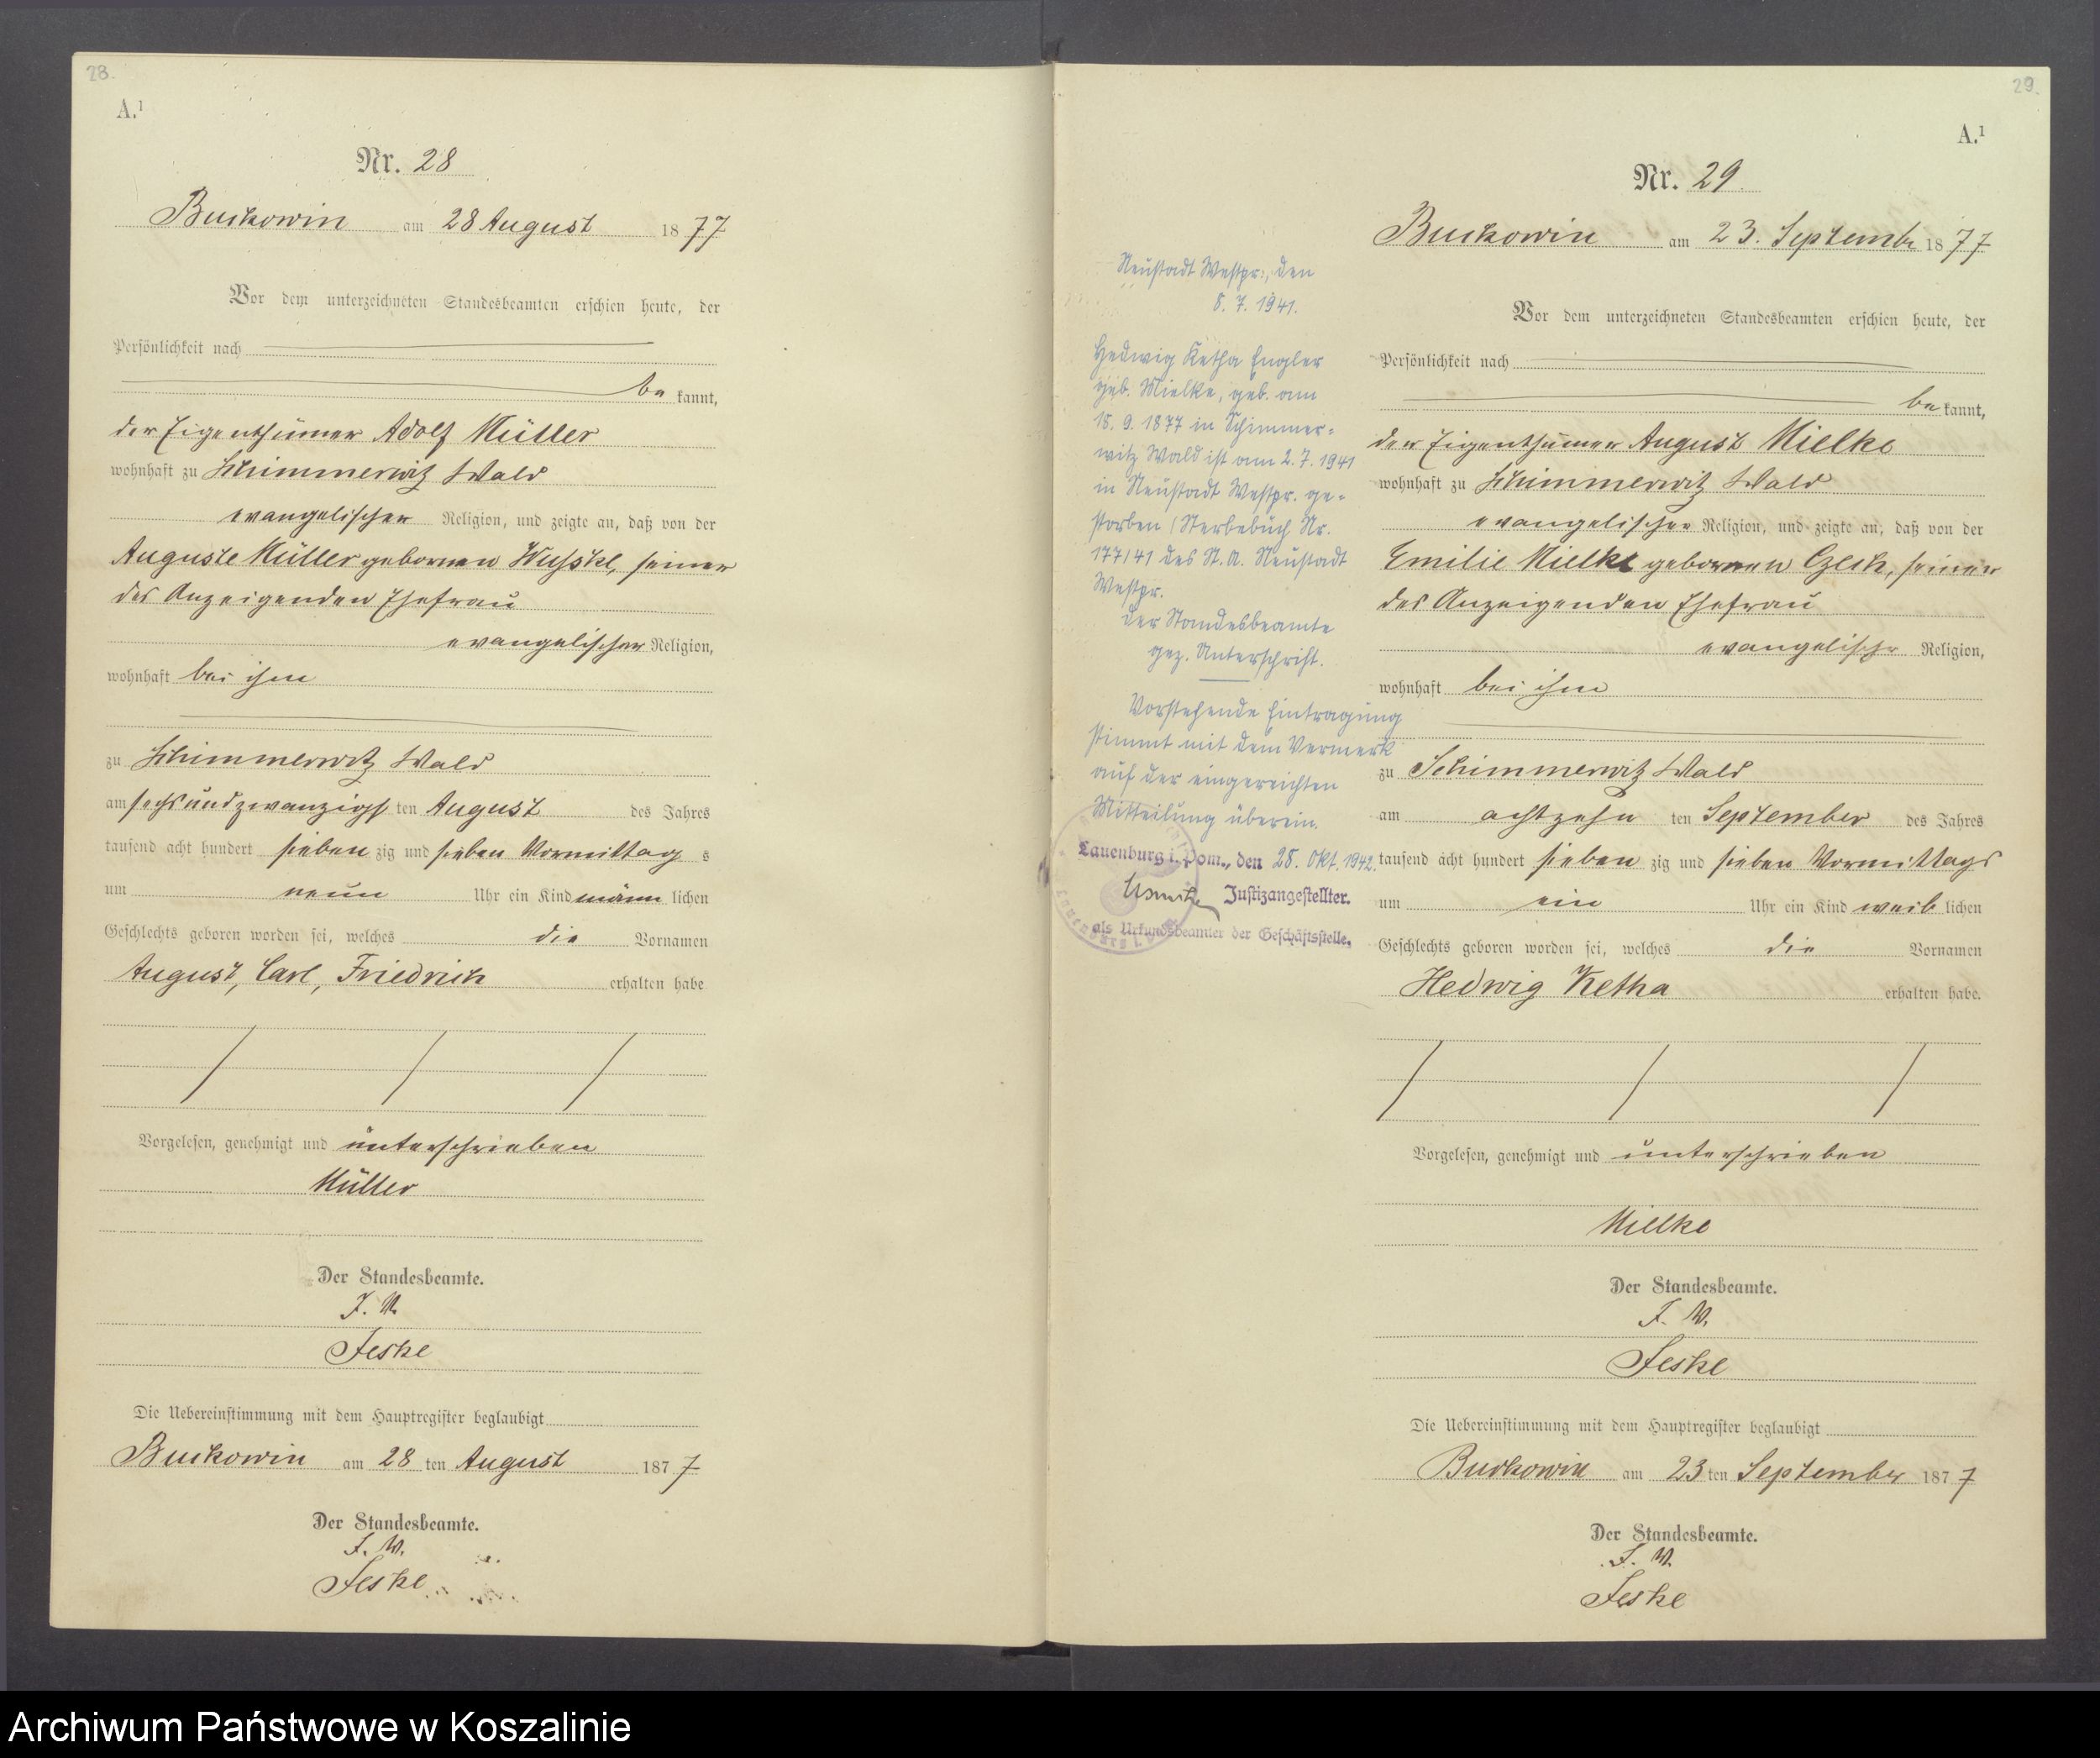 28.
A.¹
Nr. 28
Buckowin am 28 August 1877
Vor dem unterzeichneten Standesbeamten erschien heute, der
Persönlichkeit nach
be kannt,
der Eigenthümer Adolf Müller
wohnhaft zu Schimmerwitz Wald
evangelischer Religion, und zeigte an, daß von der
Auguste Müller gebornen, seiner
des Anzeigenden Ehefrau
evangelischer Religion,
wohnhaft bei ihm
zu Schimmerwitz Wald
am sechsundzwanzigsten August des Jahres
tausend acht hundert sieben zig und sieben Vormittag s
um neun Uhr ein Kind männ lichen
Geschlechts geboren worden sei, welches die Vornamen
August, Carl, Friedrich erhalten habe
Vorgelesen, genehmigt und unterschrieben
Müller
Der Standesbeamte.
J. V.
Jeske
Die Uebereinstimmung mit dem Hauptregister beglaubigt
Buckowin am 28 ten August 1877
Der Standesbeamte.
J. V.
Jeske
29.
A.¹
Nr. 29.
Buckowin am 23. Septembr 1877
Vor dem unterzeichneten Standesbeamten erschien heute, der
Persönlichkeit nach
be kannt,
der Eigenthümer August Mielke
wohnhaft zu Schimmerwitz Wald
evangelischer Religion, und zeigte an, daß von der
Emilie Mielke gebornen Czech, seiner
des Anzeigenden Ehefrau
evangelischr Religion,
wohnhaft bei ihm
zu Schimmerwitz Wald
am achtzehn ten September des Jahres
tausend acht hundert sieben zig und sieben Vormittags
um ein Uhr ein Kind weib lichen
Geschlechts geboren worden sei, welches die Vornamen
Hedwig Ketha erhalten habe.
Vorgelesen, genehmigt und unterschrieben
Mielke
Der Standesbeamte.
J. V.
Jeske
Die Uebereinstimmung mit dem Hauptregister beglaubigt
Buckowin am 23 ten September 1877
Der Standesbeamte.
J. V.
Jeske
Neustadt Westpr., den
8. 7. 1941.
Hedwig Ketha Engler
geb. Mielke, geb. am
18. 9. 1877 in Schimmer=
witz Wald ist am 2. 7. 1941
in Neustadt Westpr. ge=
storben (Sterbebuch Nr.
177/41 des St. A. Neustadt
Westpr.
Der Standesbeamte
gez. Unterschrift.
Vorstehende Eintragung
stimmt mit dem Vermerk
auf der eingereichten
Mitteilung überein.
Lauenburg i. Pom., den 28. Okt. 1942.
Justizangestellter.
als Urkundsbeamter der Geschäftsstelle.
Archiwum Państwowe w Koszalinie